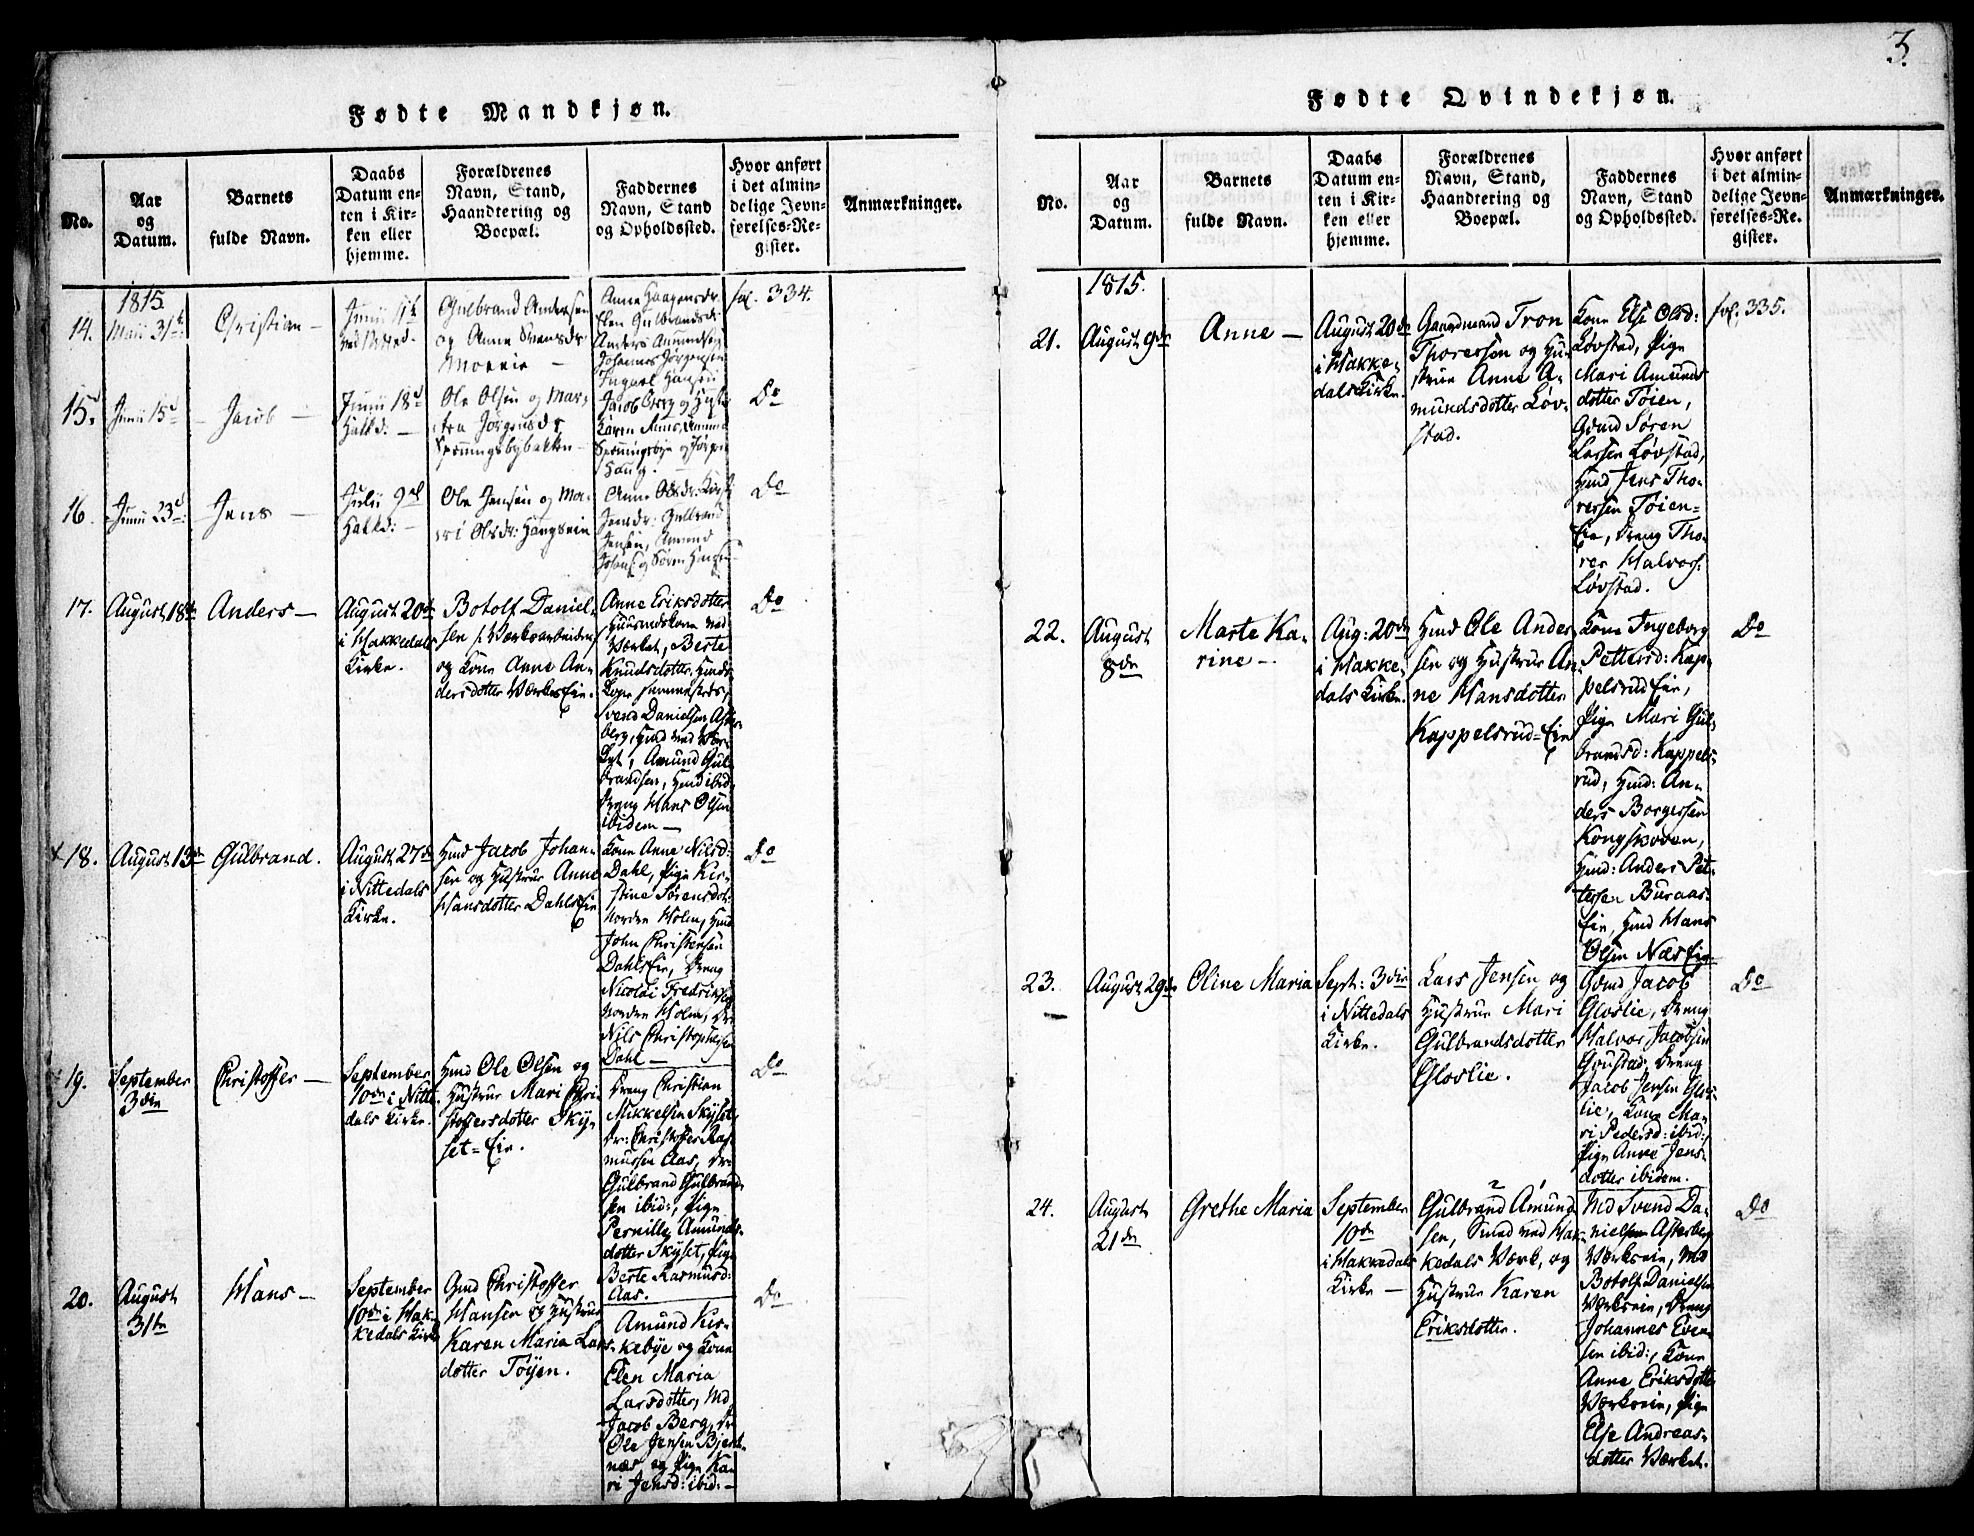 3.
Fødte Mandkjøn.
No.
Aar
og
Datum.
Barnets
fulde Navn.
Daabs
Datum en-
ten i Kir-
ken eller
hjemme.
Forældrenes
Navn, Stand,
Haandtering og
Boepæl.
Faddernes
Navn, Stand
og Opholdssted.
Hvor anført
i det almin-
delige Jevn-
førelses-Re-
gister.
Anmærkninger.
1815.
14.
Maii 31te
Christian —
Junii 11te
Gulbrand Andersen
og Anne Svensdr
Moeeie —
Anne Haagensdr.
Elen Gulbrandsdr
Anders Amundsen
Johannes Jørgensen
Ingval Hansen
fol. 334.
15.
Junii 15d
Jacob —
Junii 18d
Hakkd: —
Ole Olsen og Mar-
tea Jørgensdr
Spenningsbybakken —
Jacob Berg og Hustr
Karen
Spenningsbye og Jørgen
Haug.
Do
16.
Junii 23d
Jens —
Julii 9d
Hakkd: —
Ole Jensen og Ma-
ri Olsdr: Haugseie
Anne Olsdr:
Jensdr: Gulbrand
Jensen, Amund
Johns: og Søren
Do
17.
August 18de
Anders —
August 20de
i Hakkedals
Kirke.
Botolf Daniel-
sen, Værksarbeider
og Kone Anne An-
dersdotter Værkseie.
Anne Eriksdotter
Huusmdskone ved
Værket, Berte
Knudsdotter, Hmds
Kone sammesteds,
Svend Danielsen Aster-
berg, Hmd ved Vær-
ket, Amund Gul-
brandsen, Hmd ibid:
Dreng Hans Olsen
ibidem —
Do
+ 18.
August 13de
Gulbrand.
August 27de
i Nittedals
Kirke.
Hmd Jacob Johan-
sen og Hustrue Anne
Hansdotter Dahls Eie
Kone Anne Nilsd:
Dahl, Pige Kir-
stine Sørensdot:
Nordre Holm, Hmd
John Christensen
Dahls Eie, Dreng
Nicolai Fredriksen
Nordre Holm, Dr:
Nils Christophersen
Dahl —
Do
19.
September
3die
Christoffer —
September
10de i Nitte-
dals Kirke.
Hmd Ole Olsen og
Hustrue Mari Chri-
stoffersdotter Sky-
set-Eie.
Dreng Christian
Mikkelsen Skyset,
Dr: Christoffer Ras-
mussen Aas, Dr:
Gulbrand Gulbrand-
sen ibid:, Pige
Pernille Amunds-
dotter Skyset, Pige
Berte Rasmusd:
Aas.
Do
20.
August
31te
Hans —
September
10de i Hak-
kedals Kirke
Gmd Christoffer
Hansen og Hustrue
Karen Maria Lars-
dotter Tøyen.
Amund Kir-
kebye og Kone
Elen Maria
Larsdotter, Md
Jacob Berg, Dr:
Ole Jensen Bjert-
næs, og Pige Ka-
ri Jensd: ibid: —
Do
Fødte Qvindekjøn.
No.
Aar
og
Datum.
Barnets
fulde Navn.
Daabs
Datum en-
ten i Kir-
ken eller
hjemme.
Forældrenes
Navn, Stand,
Haandtering og
Boepæl.
Faddernes
Navn, Stand
og Opholdssted.
Hvor anført
i det almin-
delige Jevn-
førelses-Re-
gister.
Anmærkninger.
1815.
21.
August 9de
Anne —
August 20de
i Hakke-
dals Kirke.
Gaardmand Tron
Thoressen og Hu-
strue Anne A-
mundsdotter Løv-
stad.
Kone Else Olsd:
Løvstad, Pige
Mari Amunds
dotter Tøien,
Gdmd Søren
Larsen Løvstad,
Hmd Jens Tho-
ressen Tøien-
Eie, Dreng Tho-
rer Halvors:
Løvstad.
fol. 335.
22.
August
8de
Marte Ka-
rine —
Aug: 20de
i Hakke-
dals Kirke.
Hmd Ole Ander-
sen og Hustrue An-
ne Hansdotter
Kappelsrud-Eie
Kone Ingeborg
Pettersd: Kap-
pelsrud Eie,
Pige Mari Gul-
brandsd: Kappels-
rud, Hmd: An-
ders Borgersen
Kongskoven,
Hmd: Anders Pet-
tersen Buraas-
Eie, Hmd Hans
Olsen Næs Eie
Do
23.
August 29de
Oline Maria
Sept: 3die
i Nittedals
Kirke.
Lars Jensen og
Hustrue Mari
Gulbrandsdotter
Gloslie.
Gdmd Jacob
Gloslie, Dreng
Halvor Jacobsen
Goustad, Dreng
Jacob Jensen Glos-
lie, Kone Ma-
ri Pedersd: ibid:,
Pige Anne Jens-
dotter ibidem.
Do
24.
August
21de
Grethe Maria
September
10de
i Hakkedals
Kirke —
Gulbrand Amund-
sen, Smed ved Hak-
kedals Værk, og
Hustrue Karen
Eriksdotter.
Md Svend Da-
nielsen Asterberg
Værkseie, Md
Botolf Danielsen
Værkseie, Dreng
Johannes Even-
sen ibid:, Kone
Anne Eriksdotter
Værkseie, Pige
Else Andreas-
dotter Værket.
Do